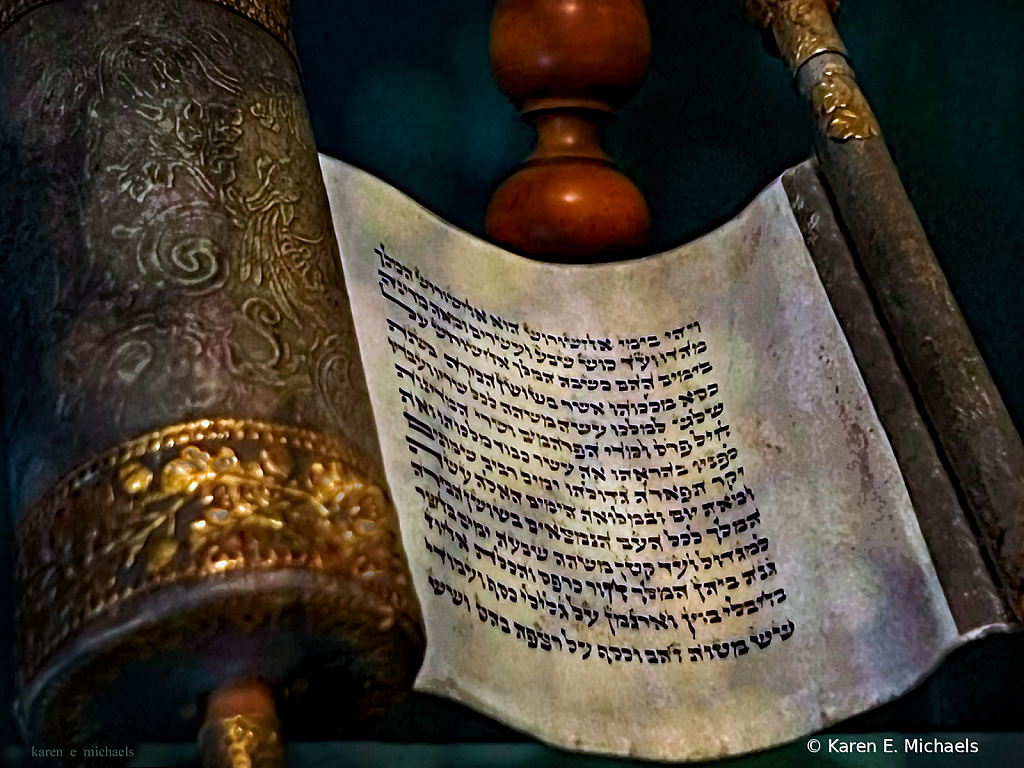 ויהי בימי אחשורוש הוא אחשורוש המלך
מהדו ועד כוש שבע ועשרים ומאה מדינה
בימים ההם כשבת המלך אחשורוש על
כסא מלכותו אשר בשושן הבירה בשנת
שלוש למלכו עשה משתה לכל שריו ועבדיו
חיל פרס ומדי הפרתמים ושרי המדינות
לפניו בהראתו את עשר כבוד מלכותו ואת
יקר תפארת גדולתו ימים רבים שמונים
ומאת יום ובמלואת הימים האלה עשה
המלך לכל העם הנמצאים בשושן הבירה
למגדול ועד קטן משתה שבעת ימים בחצר
גנת ביתן המלך חור כרפס ותכלת אחוז
בחבלי בוץ וארגמן על גלילי כסף ועמודי
שש מטות זהב וכסף על רצפת בהט ושש
karen e michaels
© Karen E. Michaels